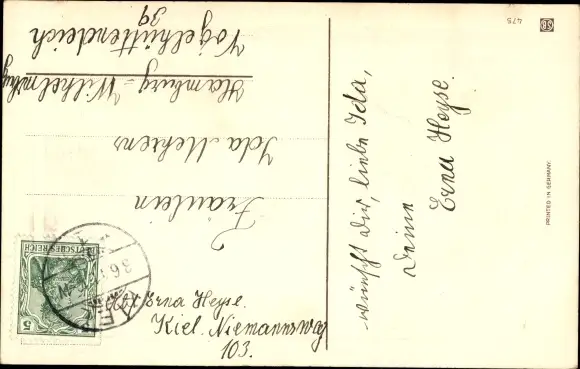 wünscht Dir, liebe Ida,
Deine
Erna Heyse.
Fräulein
Ida Mehrens
Hamburg-Wilhelmsbg
Vogelhüttendeich
39
Erna Heyse.
Kiel. Niemannsweg
103.
DEUTSCHES REICH
5
KIEL
PRINTED IN GERMANY.
475